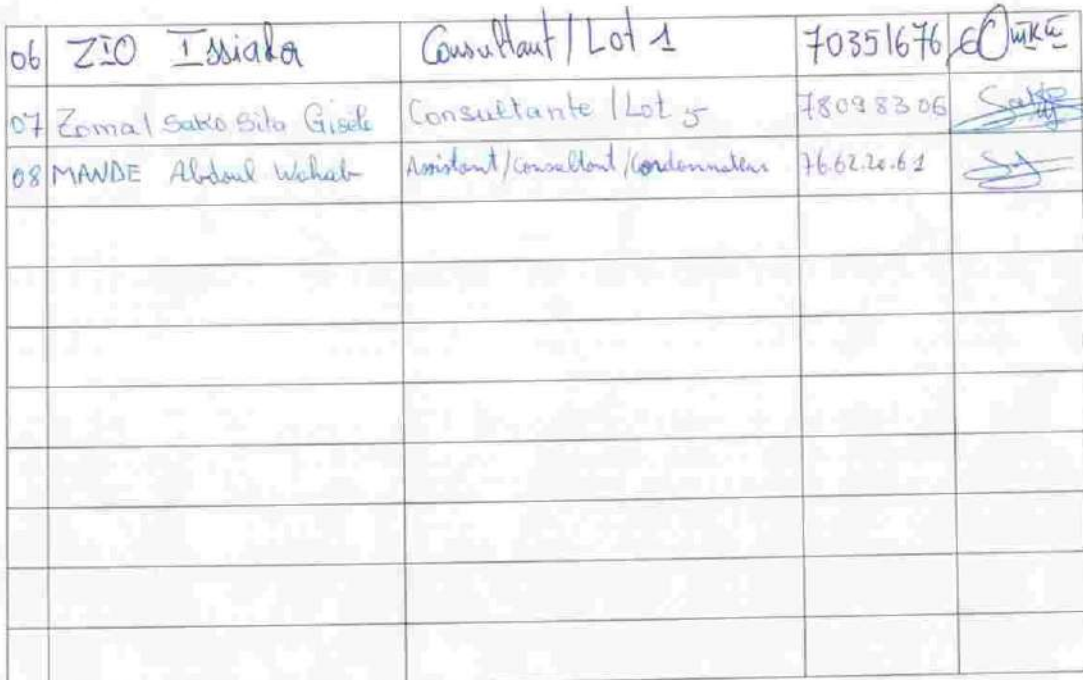 06 ZIO Issiaka Consultant / Lot 1 70351676
07 Zoma / Sako Sita Gisèle Consultante / Lot 5 78098306 Sako
08 MANDE Abdoul Wahab Assistant/consultant/Coordonnateur 76.62.20.61